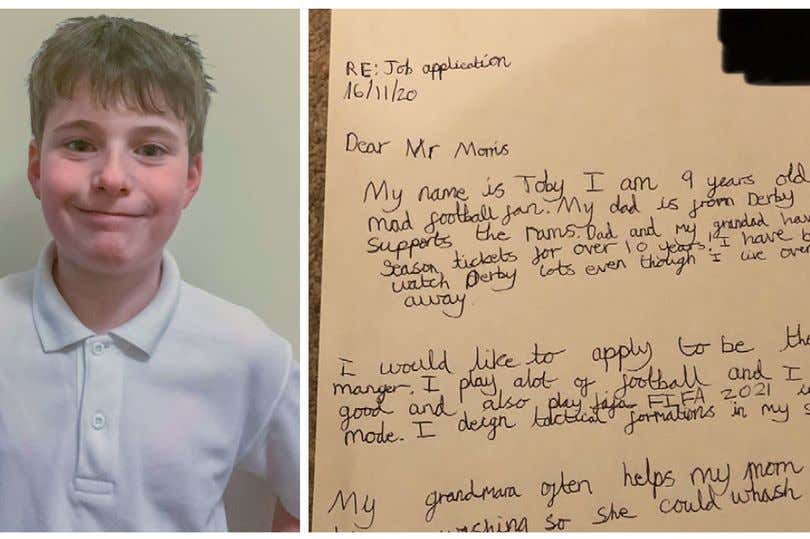 RE: Job application
16/11/20
Dear Mr Morris
My name is Toby I am 9 years old
mad football fan. My dad is from Derby
supports the rams. Dad and my grandad hav
season tickets for over 10 years! I have b
watch Derby lots even though I live over
away.
I would like to apply to be the
manger. I play alot of football and I
good and also play fifa FIFA 2021
mode. I deign tactical formations in my s
My grandmara often helps my mom
washing so she could whash